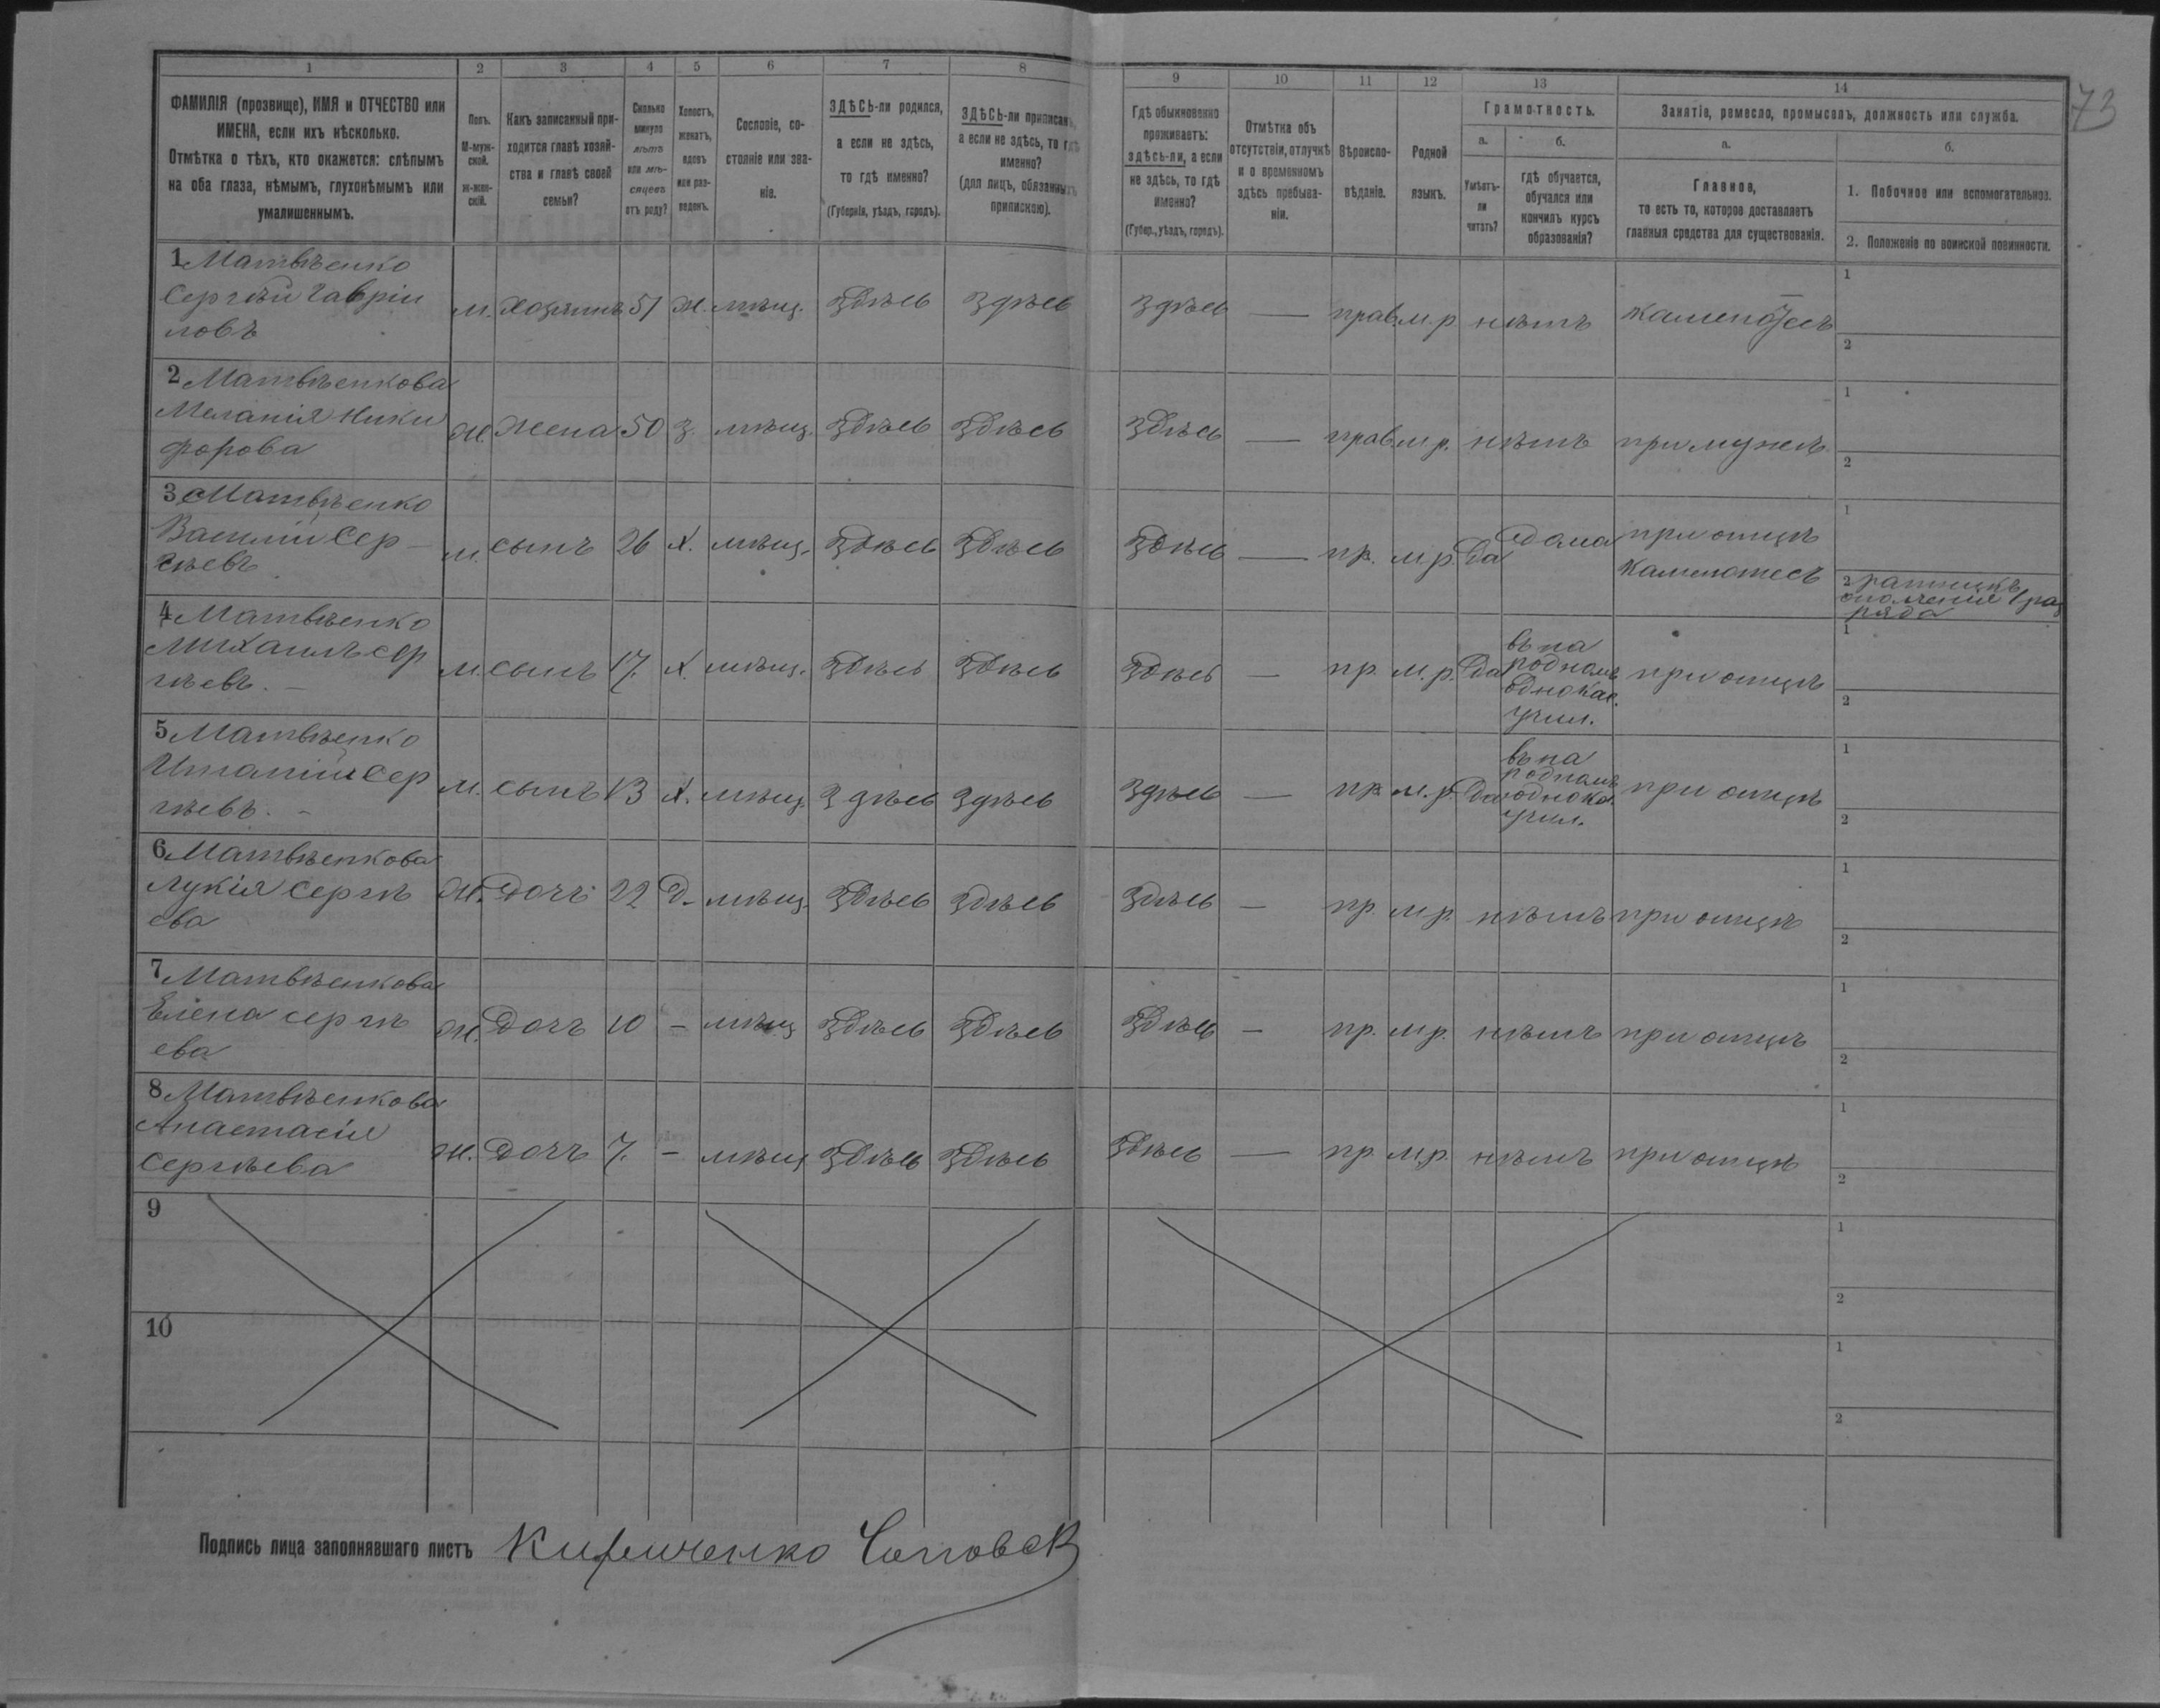 73
1 2 3 4 5 6 7 8 9 10 11 12 13 14
ФАМИЛІЯ (прозвище), ИМЯ и ОТЧЕСТВО или
ИМЕНА, если ихъ нѣсколько.
Отмѣтка о тѣхъ, кто окажется: слѣпымъ
на оба глаза, нѣмымъ, глухонѣмымъ или
умалишеннымъ.
Полъ.
М-муж-
ской.
ж-жен-
скій.
Какъ записанный при-
ходится главѣ хозяй-
ства и главѣ своей
семьи?
Сколько
минуло
лѣтъ
или мѣ-
сяцевъ
отъ роду?
Холостъ,
женатъ,
вдовъ
или раз-
веденъ.
Сословіе, со-
стояніе или зва-
ніе.
ЗДѢСЬ-ли родился,
а если не здѣсь,
то гдѣ именно?
(Губернія, уѣздъ, городъ).
ЗДѢСЬ-ли приписанъ,
а если не здѣсь, то гдѣ
именно?
(для лицъ, обязанныхъ
припискою).
Гдѣ обыкновенно
проживаетъ:
здѣсь-ли, а если
не здѣсь, то гдѣ
именно?
(Губер., уѣздъ, городъ).
Отмѣтка объ
отсутствіи, отлучкѣ
и о временномъ
здѣсь пребыва-
ніи.
Вѣроиспо-
вѣданіе.
Родной
языкъ.
Грамотность.
а.
Умѣетъ-
ли
читать?
б.
гдѣ обучается,
обучался или
кончилъ курсъ
образованія?
Занятіе, ремесло, промыселъ, должность или служба.
а.
Главное,
то есть то, которое доставляетъ
главныя средства для существованія.
б.
1. Побочное или вспомогательное.
2. Положеніе по воинской повинности.
1 Матвѣенко
Сергѣй Гавріи
ловъ
м. хозяинъ 51 ж. мѣщ. здѣсь здѣсь здѣсь — прав. м.р. нѣтъ каменотесъ
1
2
2 Матвѣенкова
Меланія Ники
форова
ж. жена 50 з. мѣщ. здѣсь здѣсь здѣсь — прав м р. нѣтъ при мужѣ
1
2
3 Матвѣенко
Василій Сер
гѣевъ
м. сынъ 26 х. мѣщ. здѣсь здѣсь здѣсь — пр. м р. да дома при отцѣ
каменотесъ
1
2 ратникъ
ополченія 1 раз
ряда
4 Матвѣенко
Михаилъ Сер
гѣевъ. —
м. сынъ 17. х. мѣщ. здѣсь здѣсь здѣсь — пр. м. р. да
въ на
родномъ
однокас.
учил.
при отцѣ
1
2
5 Матвѣенко
Сер
гѣевъ. —
м. сынъ 13 х. мѣщ. здѣсь здѣсь здѣсь — пр. м. р. да
въ на
родномъ
однока.
учил.
при отцѣ
1
2
6 Матвѣенкова
Лукія Сергѣ
ева
ж. дочь 22 д. мѣщ. здѣсь здѣсь здѣсь — пр. м р. нѣтъ при отцѣ
1
2
7 Матвѣенкова
Елена Сергѣ
ева
ж. дочь 10 — мѣщ здѣсь здѣсь здѣсь — пр. м р. нѣтъ при отцѣ
1
2
8 Матвѣенкова
Анастасія
Сергѣева
ж. дочь 7. — мѣщ здѣсь здѣсь здѣсь — пр м.р. нѣтъ при отцѣ
1
2
9
1
2
10
1
2
Подпись лица заполнявшаго листъ